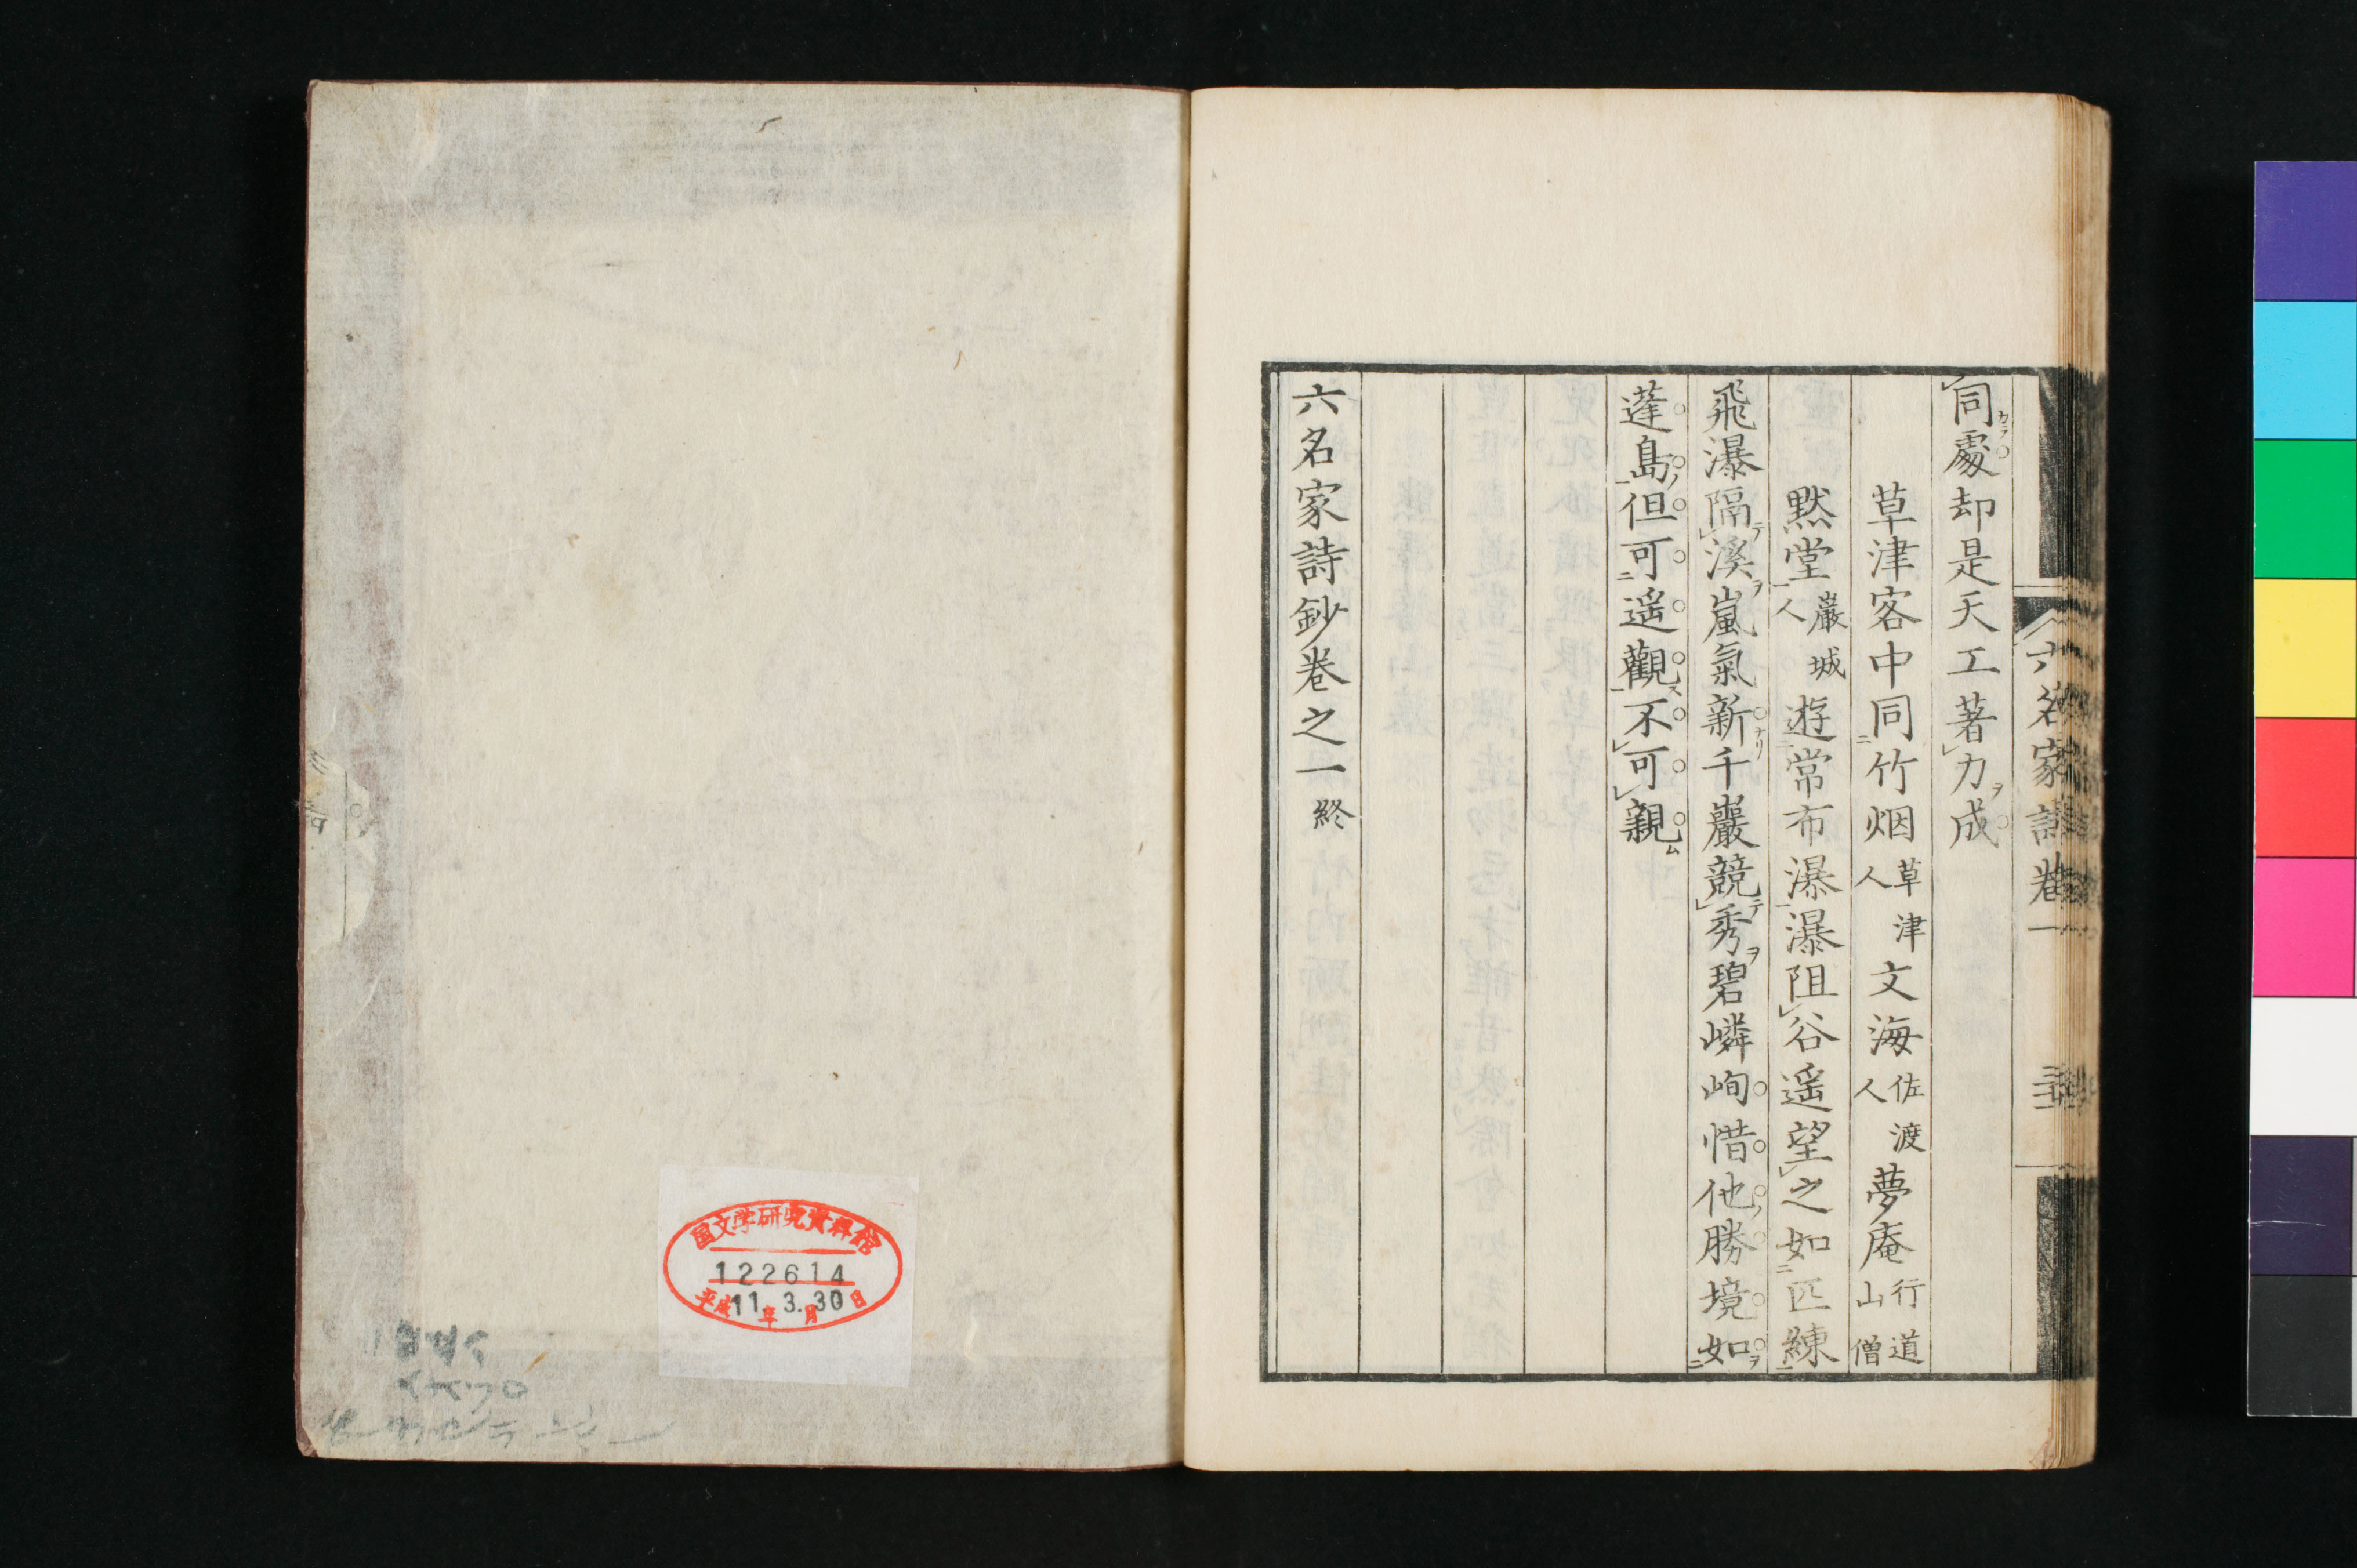 六名家詩卷一
同處却是天工著力成
草津客中同竹烟草津人文海佐渡人夢庵行道山僧
默堂巖城人遊常布瀑瀑阻谷遥望之如匹練
飛瀑隔溪嵐氣新千巖競秀碧嶙峋惜他勝境如
蓬島但可遥觀不可親
六名家詩鈔卷之一終
国文学研究資料館
122614
平成11年3月30日